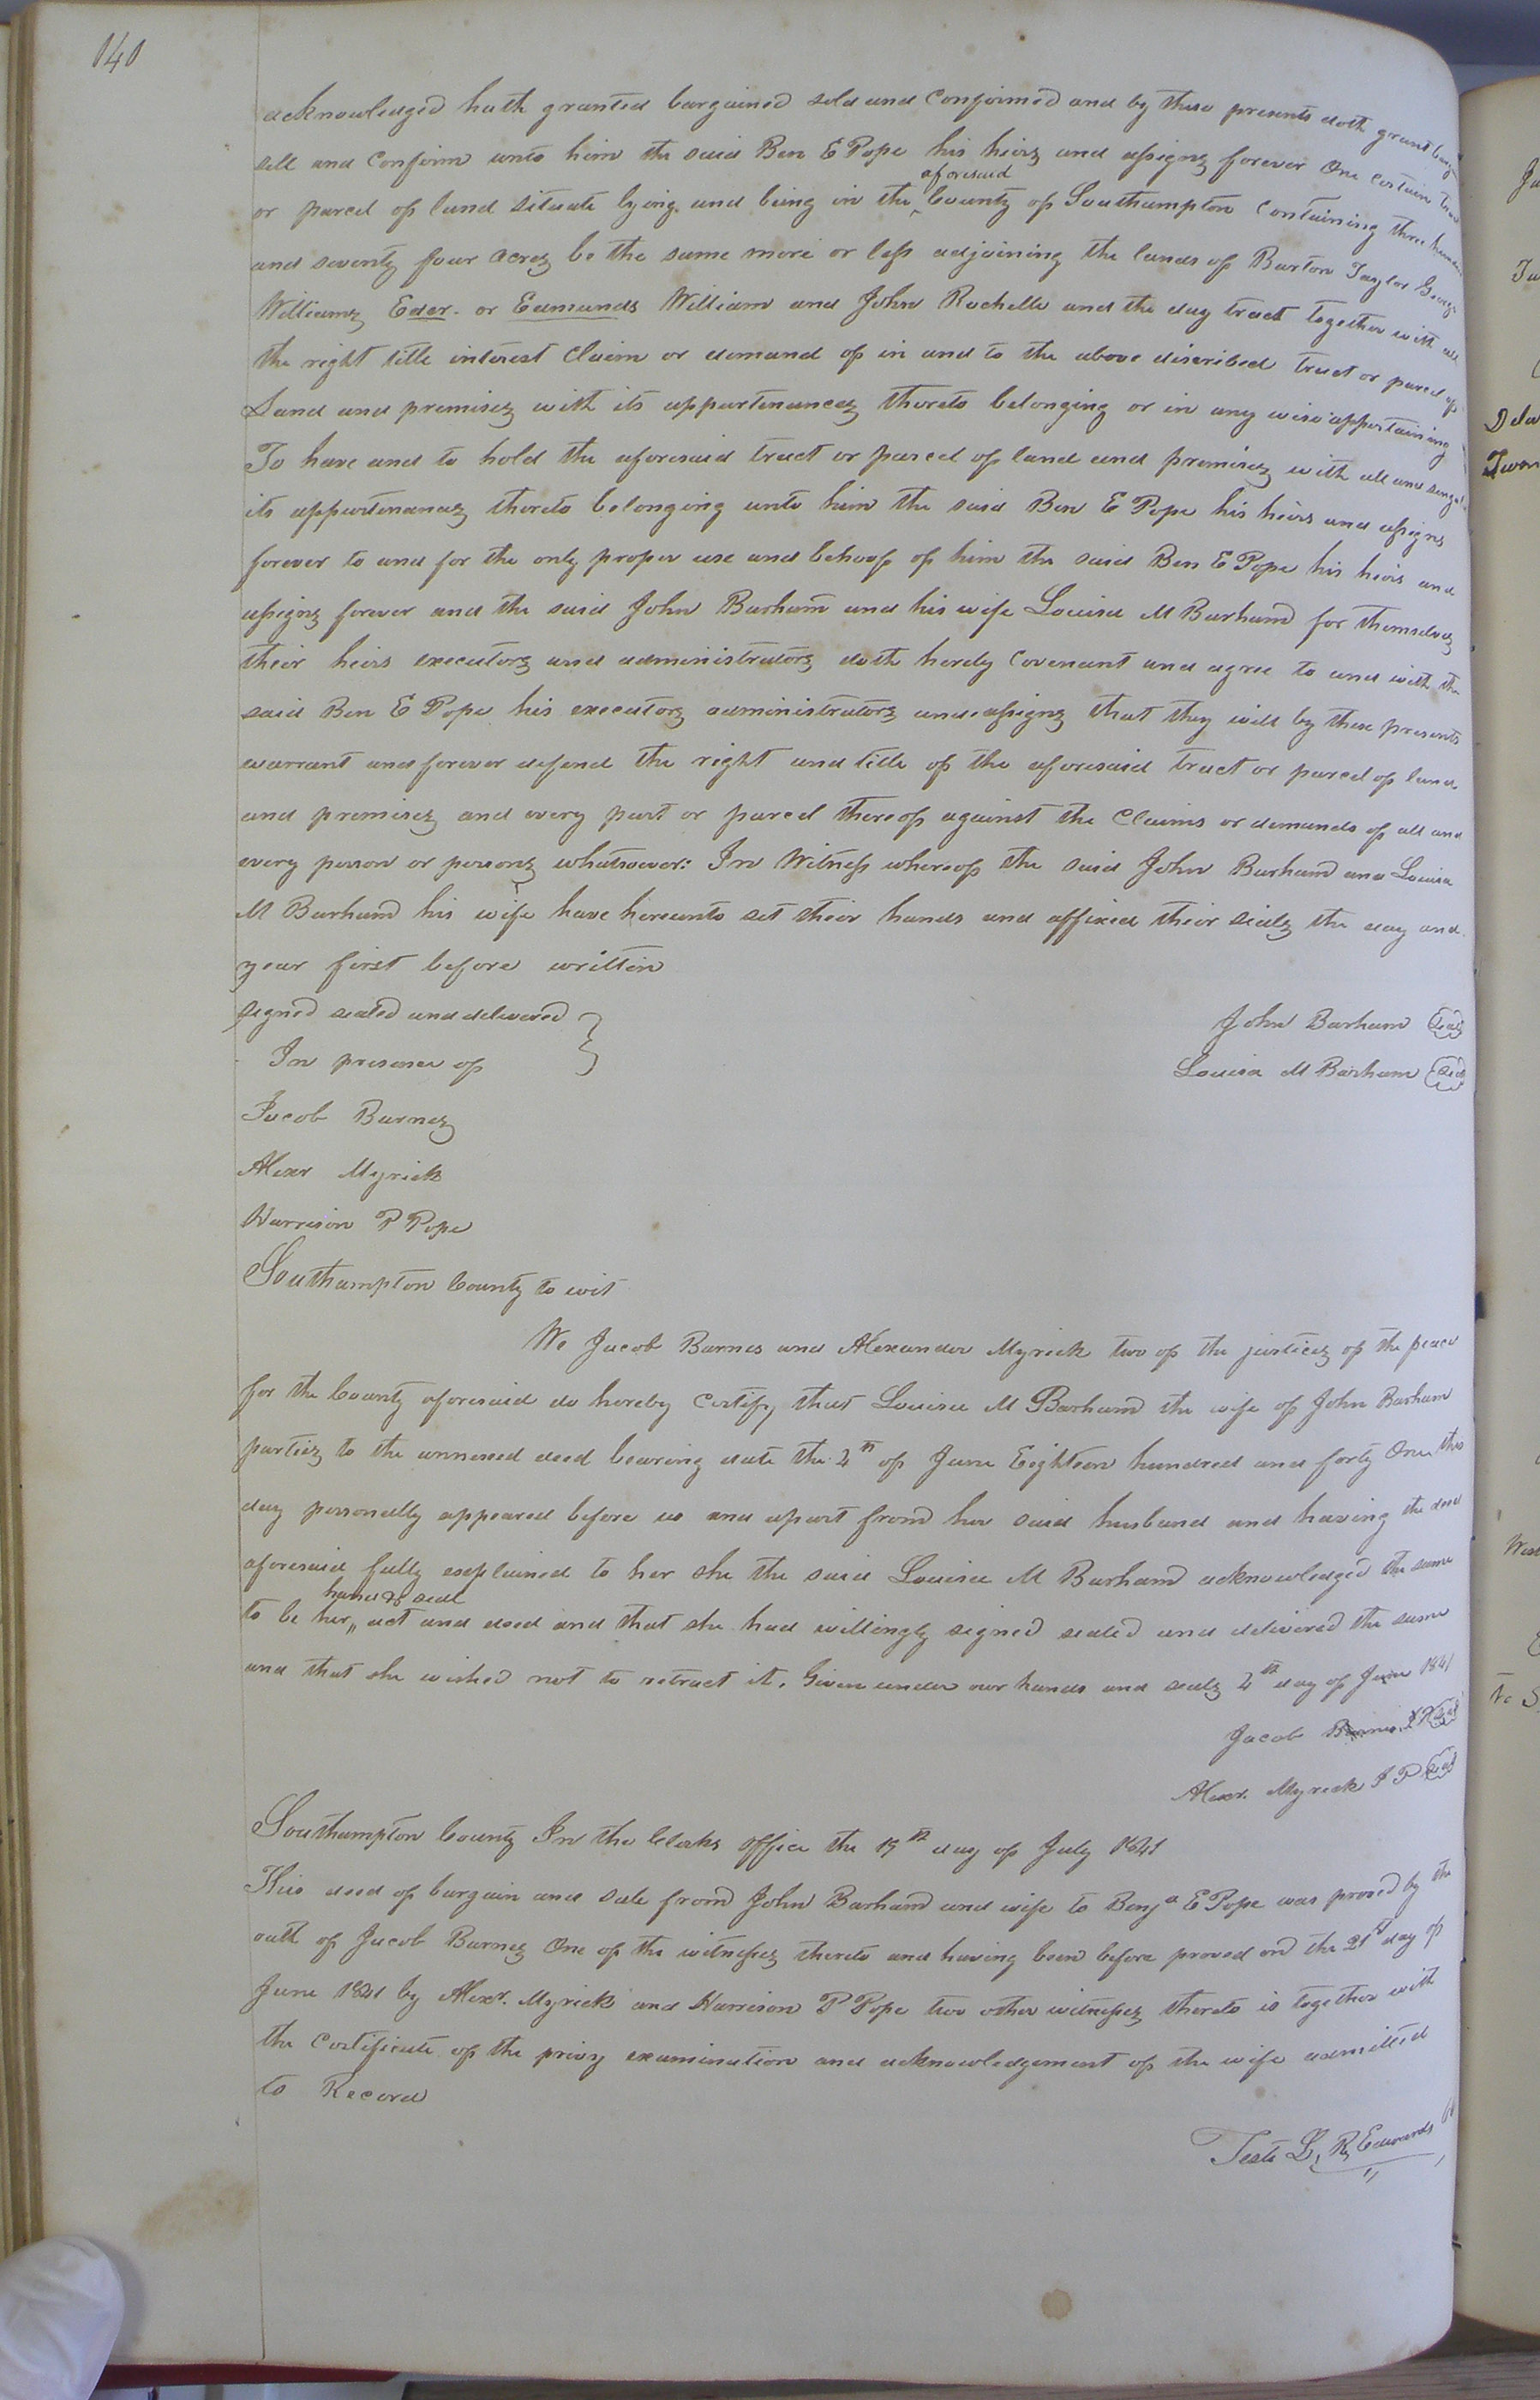 140
acknowledged hath granted bargained sold and confirmed and by these presents doth grant
sell and confirm unto him the said Ben E Pope his heirs and assigns forever One certain
or parcel of land situate lying and being in the aforesaid County of Southampton containing three hundred
and seventy four acres be the same more or less adjoining the lands of Burton Taylor George
Williams, Eder. or Edmunds William and John Rochelle and the day tract together with all
the right title interest claim or demand of in and to the above discribed tract or parcel of
Land and premises with its appurtenances thereto belonging or in any wise appertaining
To have and to hold the aforesaid tract or parcel of land and premises with all and
its appurtenances thereto belonging unto him the said Ben E Pope his heirs and assigns
forever to and for the only proper use and behoof of him the said Ben E Pope his heirs and
assigns forever and the said John Barham and his wife Louisa M Barham for themselves
their heirs executors and administrators doth hereby covenant and agree to and with the
said Ben E Pope his executors administrators and assigns that they will by these presents
warrant and forever defend the right and title of the aforesaid tract or parcel of land
and premises and every part or parcel thereof against the claims or demands of all and
every person or persons whatsoever: In Witness whereof the said John Barham and Louisa
M Barham his wife have hereunto set their hands and affixed their seals the day and
year first before written
signed sealed and delivered } John Barham (Seal)
In presence of Louisa M Barham (Seal)
Jacob Barnes
Alexr Myrick
Harrison P Pope
Southampton County to wit
We Jacob Barnes and Alexander Myrick two of the justices of the peace
for the County aforesaid do hereby certify that Louisa M Barham the wife of John Barham
parties to the annexed deed bearing date the 4th of June Eighteen hundred and forty One this
day personally appeared before us and apart from her said husband and having the deed
aforesaid fully explained to her she the said Louisa M Barham acknowledged the same
to be her hand & seal act and deed and that she had willingly signed sealed and delivered the same
and that she wished not to retract it. Given under our hands and seals 4th day of June 1841
Jacob Barnes J P (Seal)
Alexr. Myrick J P (Seal)
Southampton County In the Clerks office the 19th day of July 1841
This deed of bargain and sale from John Barham and wife to Benja E Pope was proved by the
oath of Jacob Barnes One of the witnesses thereto and having been before proved on the 21st day of
June 1841 by Alexr. Myrick and Harrison P Pope two other witnesses thereto is together with
the certificate of the privy examination and acknowledgement of the wife admitted
to Record
Teste L. R. Edwards